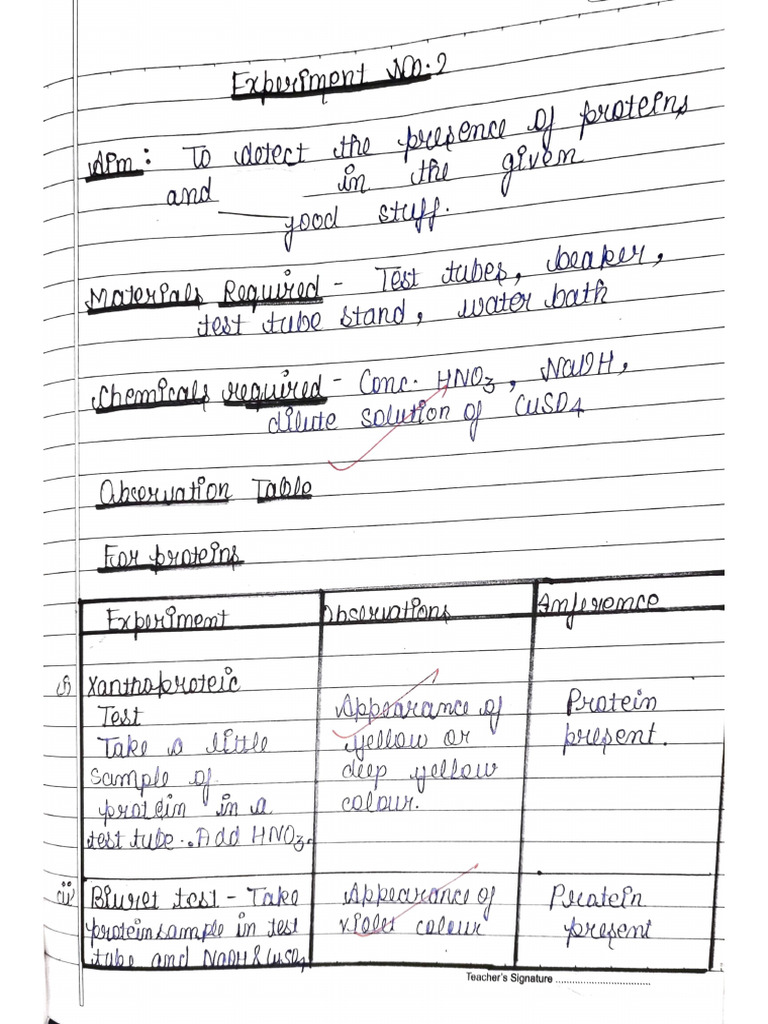 Experiment No. 2
Aim: To detect the presence of proteins
and ____ in the given
good stuff.
Materials Required - Test tubes, beaker,
test tube stand, water bath
Chemicals required - Conc. HNO3, NaOH,
dilute solution of CuSO4
Observation Table
For proteins
Experiment Observations Inference
i) Xanthoproteic
Test
Take a little
sample of
protein in a
test tube. Add HNO3.
Appearance of
yellow or
deep yellow
colour.
Protein
present.
ii) Biuret test - Take
protein sample in test
tube and NaOH & CuSO4
Appearance of
violet colour
Protein
present
Teacher's Signature ................................